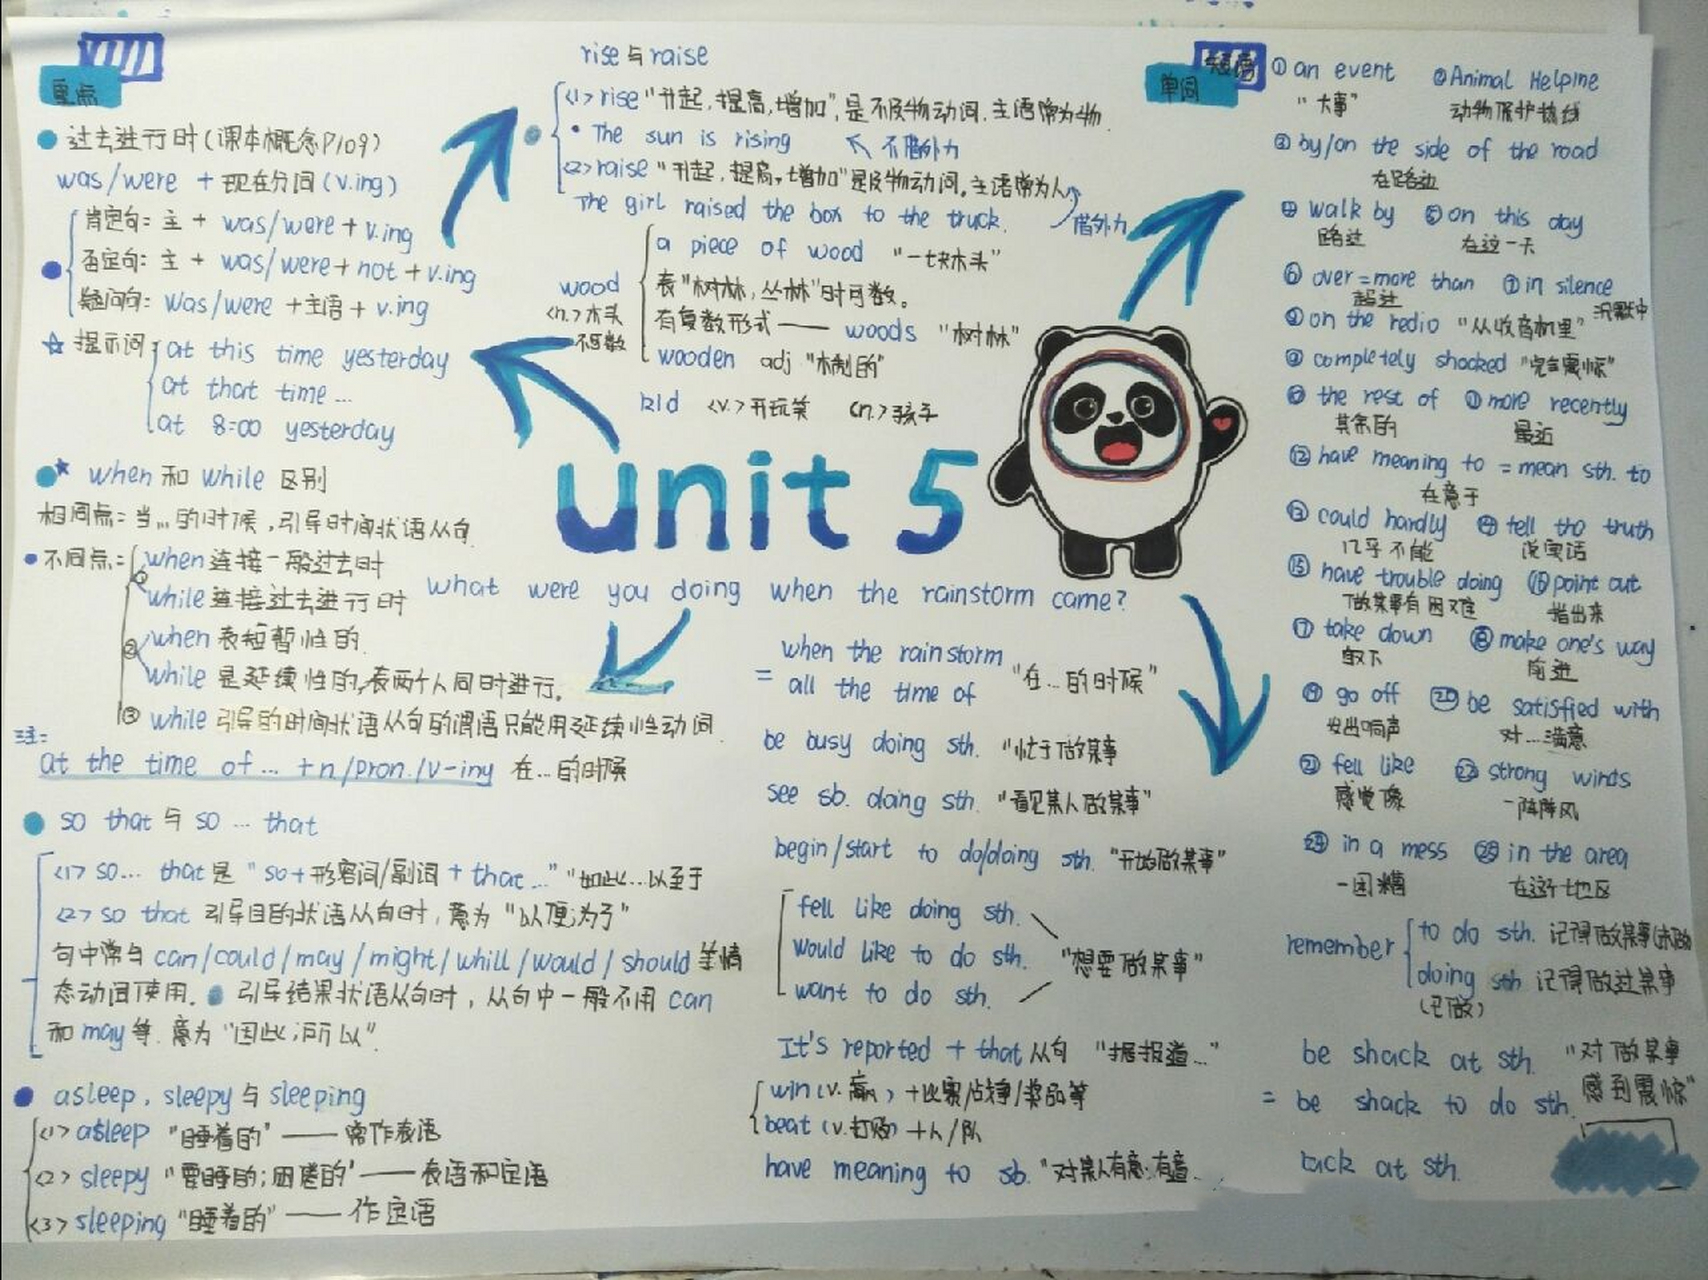 重点
过去进行时(课本概念P109)
was/were + 现在分词(v.ing)
肯定句: 主 + was/were + v.ing
否定句: 主 + was/were + not + v.ing
疑问句: was/were + 主语 + v.ing
提示词
at this time yesterday
at that time ...
at 8:00 yesterday
when 和 while 区别
相同点: 当...的时候,引导时间状语从句
不同点:
① when 连接一般过去时
while 连接过去进行时
② when 表短暂性的.
while 是延续性的,表两个人同时进行。
③ while 引导的时间状语从句的谓语只能用延续性动词
注:
at the time of ... +n/pron./v-iny 在...的时候
so that 与 so ... that
<1> so... that 是 "so+形容词/副词 + that ..." "如此...以至于
<2> so that 引导目的状语从句时, 意为 "以便;为了"
句中常与 can/could/may/might/whill/would/should 等情
态动词使用. 引导结果状语从句时, 从句中一般不用 can
和 may 等. 意为 "因此;所以".
asleep, sleepy 与 sleeping
<1> asleep "睡着的" —— 常作表语
<2> sleepy "要睡的;困倦的" —— 表语和定语
<3> sleeping "睡着的" —— 作定语
rise 与 raise
<1> rise "升起,提高,增加", 是不及物动词. 主语常为物.
The sun is rising
不借外力
<2> raise "升起,提高,增加" 是及物动词。主语常为人
The girl raised the box to the truck.
借外力
wood
<n.> 木头
不可数
a piece of wood "一块木头"
表 "树林, 丛林" 时可数。
有复数形式 —— woods "树林"
wooden adj "木制的"
kid <v.> 开玩笑 <n.> 孩子
unit 5
what were you doing when the rainstorm came?
when the rainstorm
= all the time of "在...的时候"
be busy doing sth. "忙于做某事
see sb. doing sth. "看见某人做某事"
begin/start to do/doing sth. "开始做某事"
fell like doing sth.
would like to do sth. "想要做某事"
want to do sth.
It's reported + that 从句 "据报道..."
win (v. 赢) + 比赛/战争/奖品等
beat (v. 打败) + 人/队
have meaning to sb. "对某人有意
单词
短语
① an event
"大事"
② Animal Helpine
动物保护热线
③ by/on the side of the road
在路边
④ walk by
路过
⑤ on this day
在这一天
⑥ over = more than
超过
⑦ in silence
沉默中
on the redio "从收音机里"
⑨ completely shocked "完全震惊"
⑩ the rest of
其余的
⑪ more recently
最近
⑫ have meaning to = mean sth. to
在意于
⑬ could hardly
几乎不能
⑭ tell the truth
说实话
⑮ have trouble doing
做某事有困难
⑯ point out
指出来
⑰ take down
取下
⑱ make one's way
前进
⑲ go off
发出响声
⑳ be satisfied with
对...满意
㉑ fell like
感觉像
㉒ strong winds
一阵阵风
in a mess
一团糟
in the area
在这个地区
remember
to do sth. 记得做某事
doing sth 记得做过某事
(已做)
be shack at sth. "对做某事
= be shack to do sth. 感到震惊"
at sth.